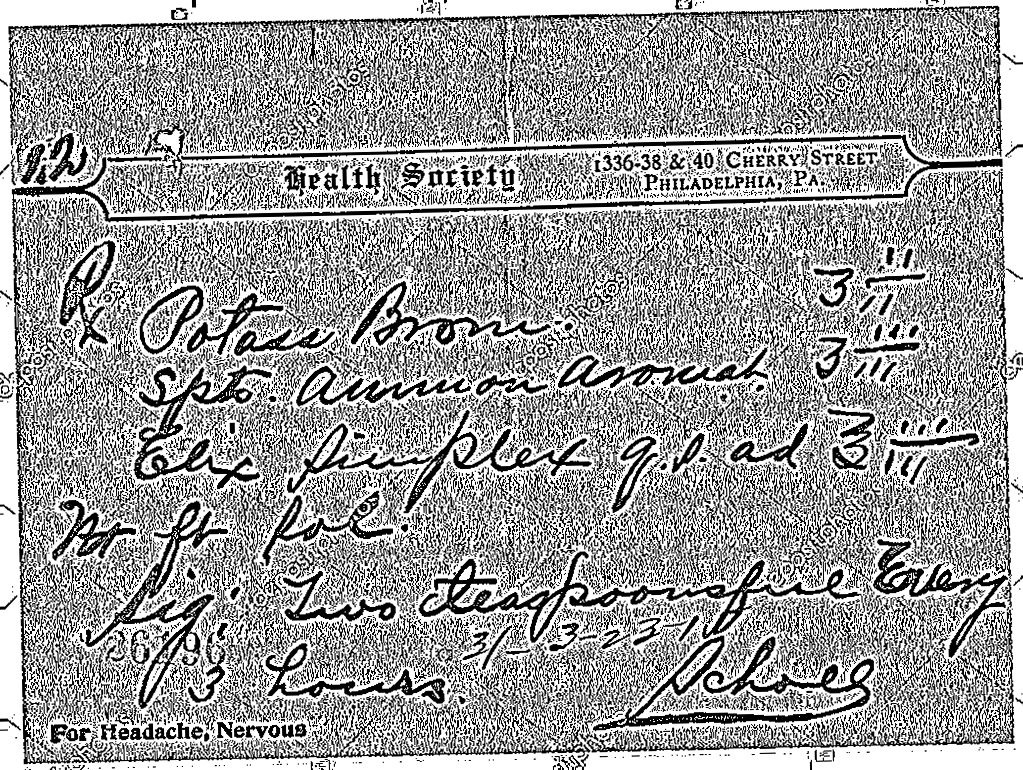 Health Society
1336-38 & 40 CHERRY STREET
PHILADELPHIA, PA.
Rx Potass Brom. ʒ ii
Spts. Ammon Aromat. ʒ iii
Elix Simplex q.s. ad ℥ iii
M ft Sol.
Sig: Two teaspoonsful Every
31-3-23-1
3 hours.
Scholl
For Headache, Nervous
depositphotos